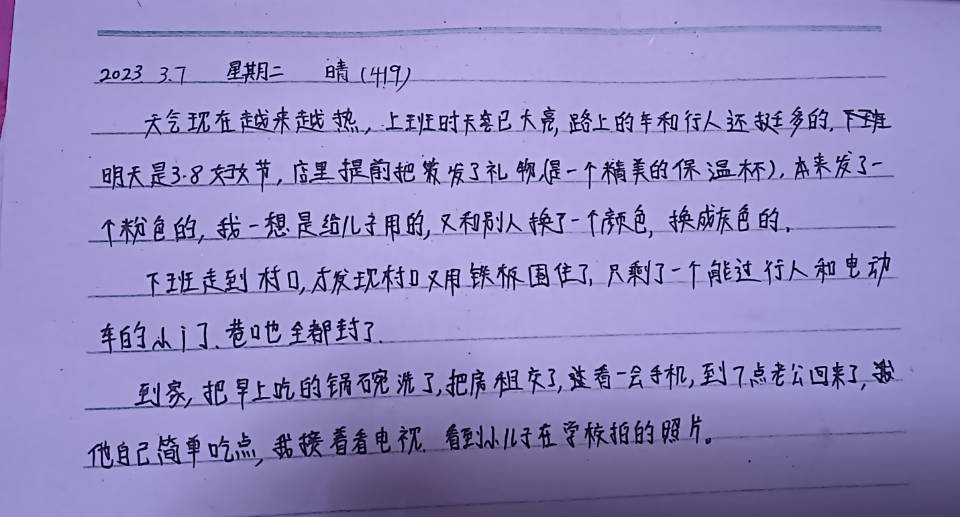 2023 3.7 星期二 晴(419)
天气现在越来越热,上班时天空已大亮,路上的车和行人还挺多的,下班
明天是3.8妇女节,店里提前把发了礼物(是一个精美的保温杯),本来发了一
个粉色的,我一想是给儿子用的,又和别人换了一个颜色,换成灰色的。
下班走到村口,才发现村口又用铁板围住了,只剩了一个能过行人和电动
车的小门了.巷口也全都封了.
到家,把早上吃的锅碗洗了,把房租交了,看一会手机,到7点老公回来了,
他自己简单吃点,我接着看电视.看到小儿子在学校拍的照片。